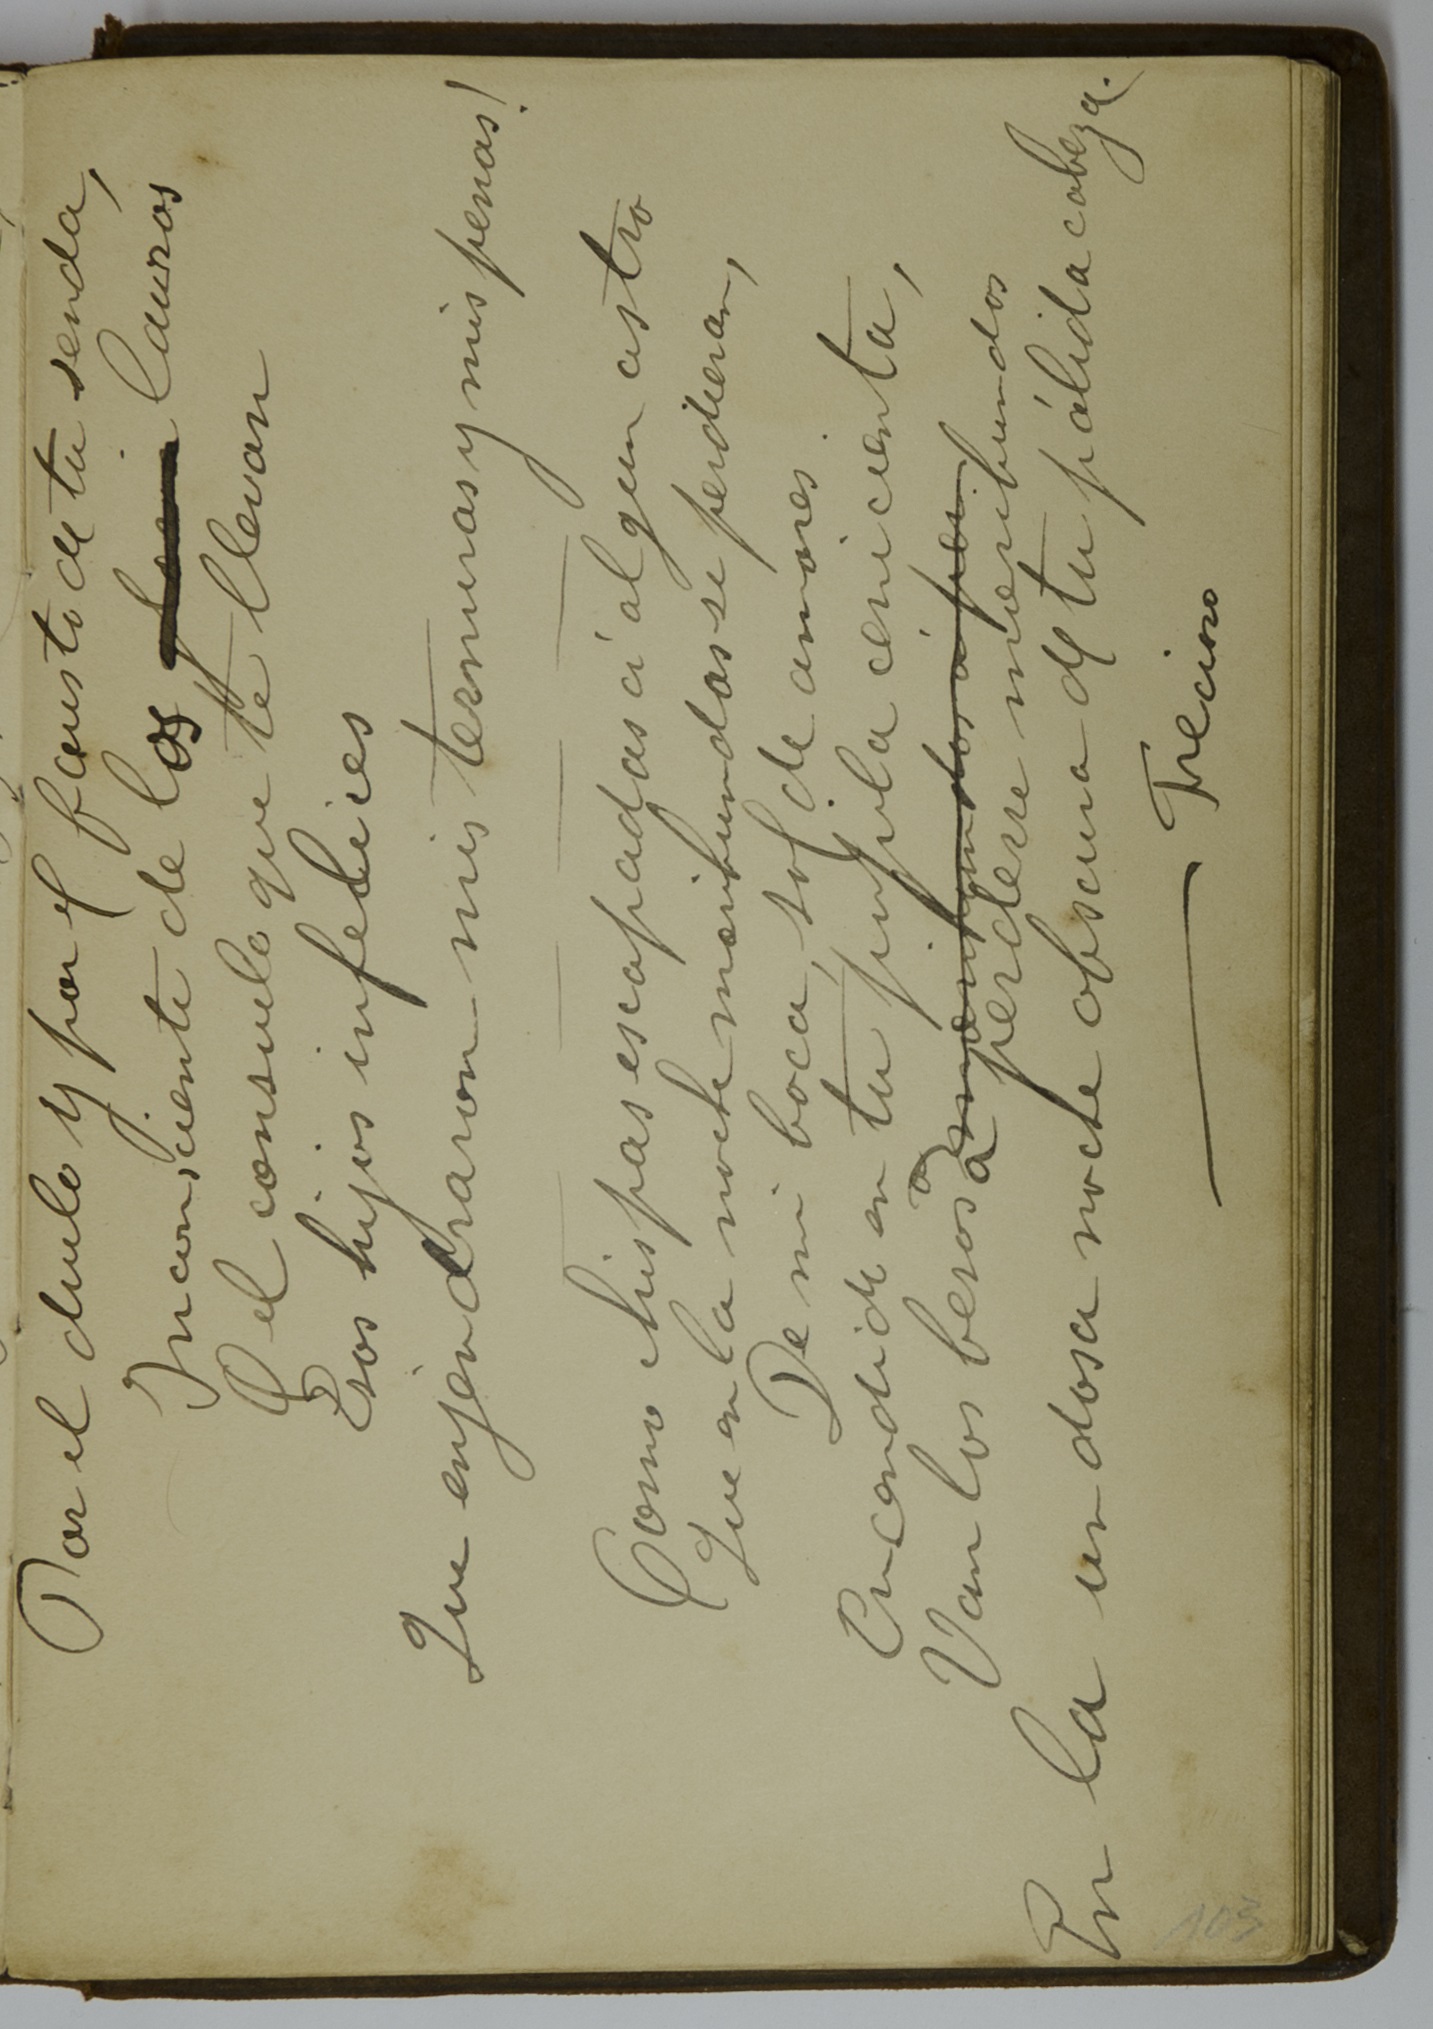 Por el duelo y por el fausto de tu senda,
Inconsciente de los lauros
Y el consuelo que te llevan
Esos hijos infelices
Que enjendraron mis ternuras y mis penas!
Como chispas escapadas á algun astro
Que en la noche moribundas se perdieran,
De mi boca, sol de amores
Encendido en tu pupila cenicienta,
Van los besos á moribundos á per
á perderse moribundos
En la undosa noche obscura de tu pálida cabeza.
103